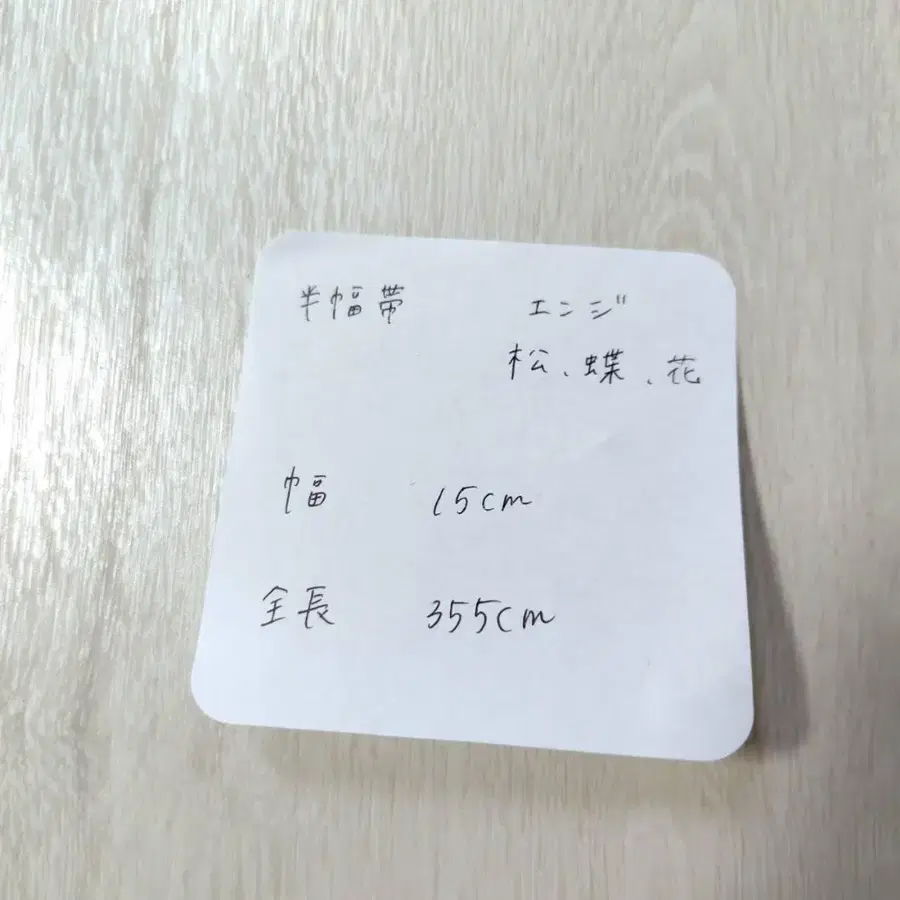 半幅帯 エンジ
松、蝶、花
幅 15cm
全長 355cm